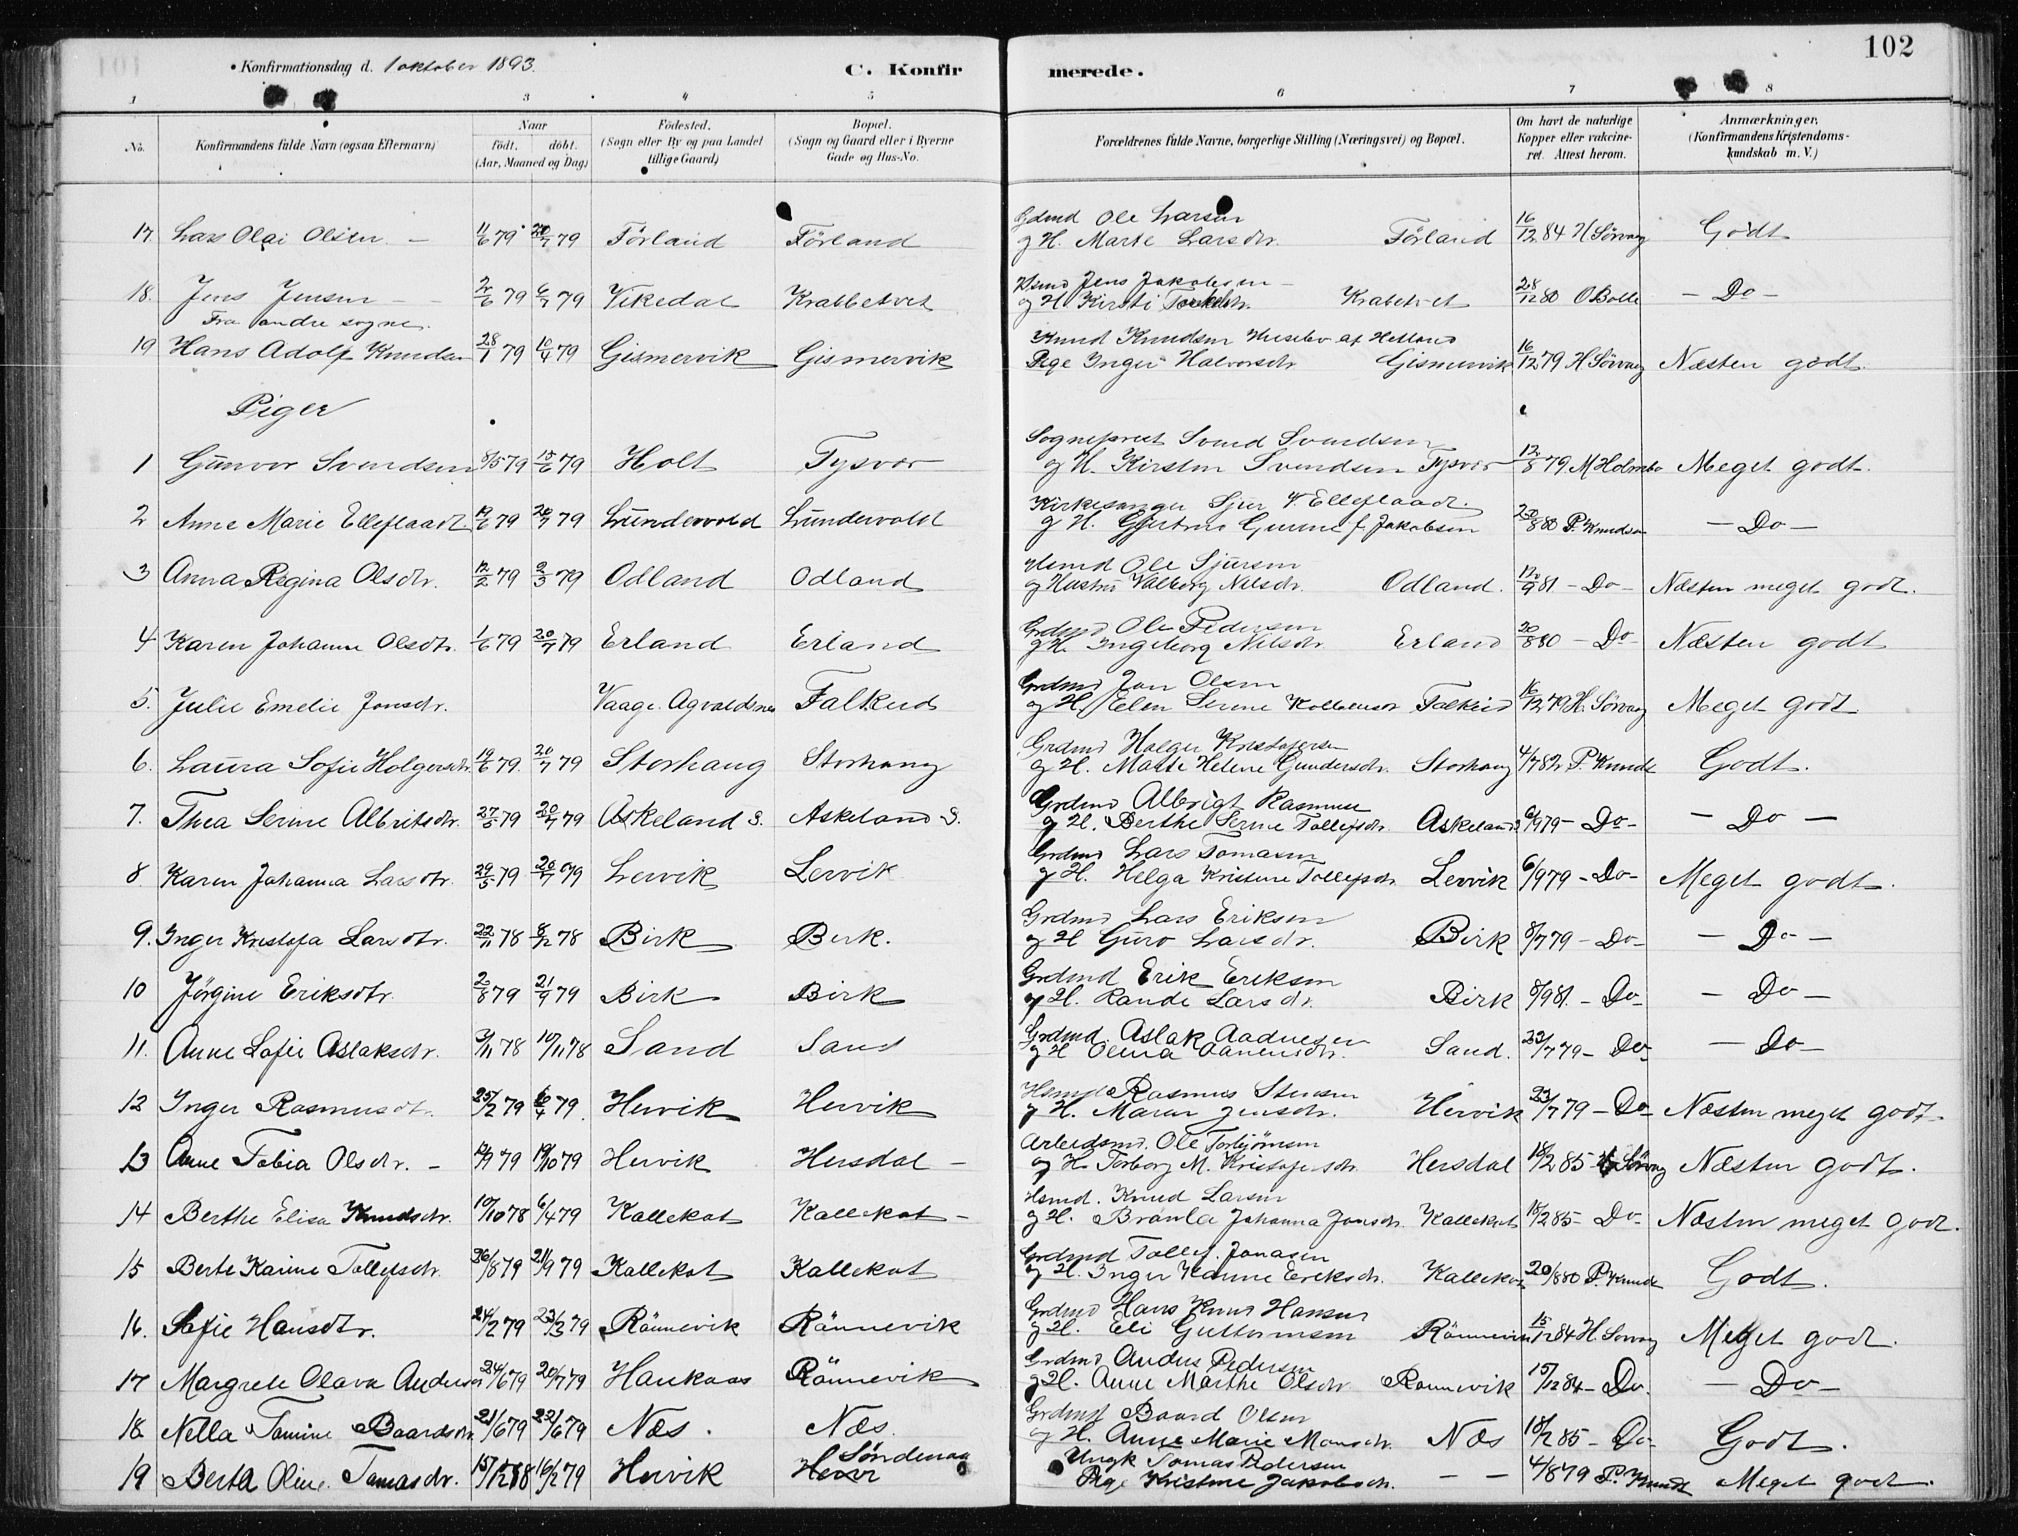 102
Konfirmationsdag d. 1 oktober 1893. C. Konfirmerede.
1 3 4 5 6 7 8
No. Konfirmandens fulde Navn (ogsaa Efternavn) Naar födt. döbt. (Aar, Maaned og Dag) Födested. (Sogn eller By og paa Landet tillige Gaard) Bopæl. (Sogn og Gaard eller i Byerne Gade og Hus-No. Forældrenes fulde Navne, borgerlige Stilling (Næringsvei) og Bopæl. Om havt de naturlige Kopper eller vakcineret. Attest herom. Anmærkninger. (Konfirmandens Kristendomskundskab m. V.)
Gdmd Ole Larsen
17 Lars Olai Olsen – 11/6 79 20/7 79 Förland Förland og H. Marte Larsdtr. Förland 16/12 84 H Sörvag Godt
Hsmd Jens Jakobsen
18. Jens Jensen – 2/6 79 6/7 79 Vikedal Krabbetvet og H Kirsti Torkelsdtr. Krabetvet 28/12 80 O Bolle – Do –
Fra andre sogne.
Knud Knudsen Husebø af Hetland
19 Hans Adolf Knudsen 28/1 79 10/4 79 Gismervik Gismervik Pige Inger Halvorsdtr Gismervik 16/12 79 H Sörvag Næsten godt.
Piger
Sogneprest Svend Svendsen
1 Gunvor Svendsen 8/5 79 15/6 79 Holt Tysvær og H. Kirsten Svendsen Tysvær 12/8 79 M Holmbo Meget godt.
Kirkesanger Sjur V. Elleflaadt.
2 Anne Marie Elleflaadt 12/6 79 20/7 79 Lundervold Lundervold og H. Gjertine Gurine f. Jakobsen 20/8 80 P. Knudsen – Do –
Hsmd Ole Sjursen
3 Anna Regina Olsdtr. 12/2 79 2/3 79 Odland Odland og Hustru Valborg Nilsdtr. Odland. 12/9 81 – Do – Næsten meget godt.
Grdmd Ole Pedersen
4 Karen Johanne Olsdtr. 1/6 79 20/7 79 Erland Erland og H. Ingeborg Nilsdtr Erland 20/8 80 – Do – Næsten godt
Grdmd Jon Olsen
5. Julie Emelie Jonsdtr. Vaage. Agvaldsnes Falkeid og H Elen Serine Kolbensdr Falkeid 16/12 79 H. Sörvag Meget godt
Grdmd Holger Kristofersen
6. Laura Sofie Holgersdtr. 19/6 79. 20/7 79 Storhaug Storhaug og H. Marte Helene Gundersdtr. Storhaug 4/7 82 P. Knudt Godt.
Grdmd Albrigt Rasmuse
7. Thea Serine Albritsdtr. 27/5 79 20/7 79 Askeland S. Askeland S. og H. Berthe Serine Tollefsdtr. Askeland S 6/9 79 – Do – – Do –
Grdmd Lars Tomasen
8. Karen Johanna Larsdtr. 29/5 79 20/7 79 Lervik Lervik og H. Helga Kristine Tollefsdtr Lervik 6/9 79 – Do – Meget godt.
Grdmd Lars Eriksen
9. Inger Kristofa Larsdtr. 22/11 78 8/12 78 Birk Birk. og H Guro Larsdtr. Birk 8/7 79 – Do – – Do –
Grdmd Erik Eriksen
10 Jörgine Eriksdtr. 2/8 79 21/9 79 Birk Birk og H. Rande Larsdtr. Birk 8/9 81. – Do – – Do –
Grdmd. Aslak Aadnesen
11. Anne Sofie Aslaksdtr. 3/11 78 10/11 78 Sand Sand og H Olina Sand. 23/7 79 – Do – – Do –
Hsmd Rasmus Stensen
12 Inger Rasmusdtr. 25/2 79 6/4 79. Hervik Hervik og H. Maren Jensdtr. Hervik 23/7 79 – Do Næsten meget godt
Arbeidsmd. Ole Torbjörnsen
13 Anne Tobia Olsdtr. – 12/9 79 19/10 79 Hervik Hersdal – og H. Torborg M. Kristofersdtr. Hersdal 18/2 85 H Sörvag Næsten godt.
Hsmd. Knud Larsen
14 Berthe Elisa Knudsdtr. 10/10 78 6/4 79 Kallekot Kallekot – og H. Brønla Johanna Jonsdtr. Kallekot 18/2 85 – Do – Næsten meget godt.
Grdmd Tollef Jonasen
15 Berte Karine Tollefsdtr. 26/8 79 21/9 79 Kallekot Kallekot og H. Inger Karine Eriksdtr. Kallekot 20/8 80 P. Knudt Godt.
Grdmd Hans Knud Hansen
16. Sofie Hansdtr. 24/2 79 23/3 79 Rönnevik Rönnevik og H. Eli Guttormsen Rönnevik 15/12 84 H Sörvag Meget godt.
Grdmd Anders Pedersen
17 Margrete Olava Anders 24/6 79 20/7 79 Haukaas Rönnevik og H. Anne Marthe Olsdtr Rönnevik 15/12 84 – Do. – Do –
Grdmd Baard Olsen
18. Nella Tomine Baardsdtr. 21/6 79 22/6 79 Næs. Næs. og H. Anne Marie Monsdtr. Næs 18/2 85 – Do – Godt.
Söndenaa Ungk Tomas Pedersen
19 Berta Oline Tomasdtr. 15/12 78 16/2 79 Hervik Pige Kristine Jakobsdtr. – – 4/8 79 P. Knudt Meget godt.